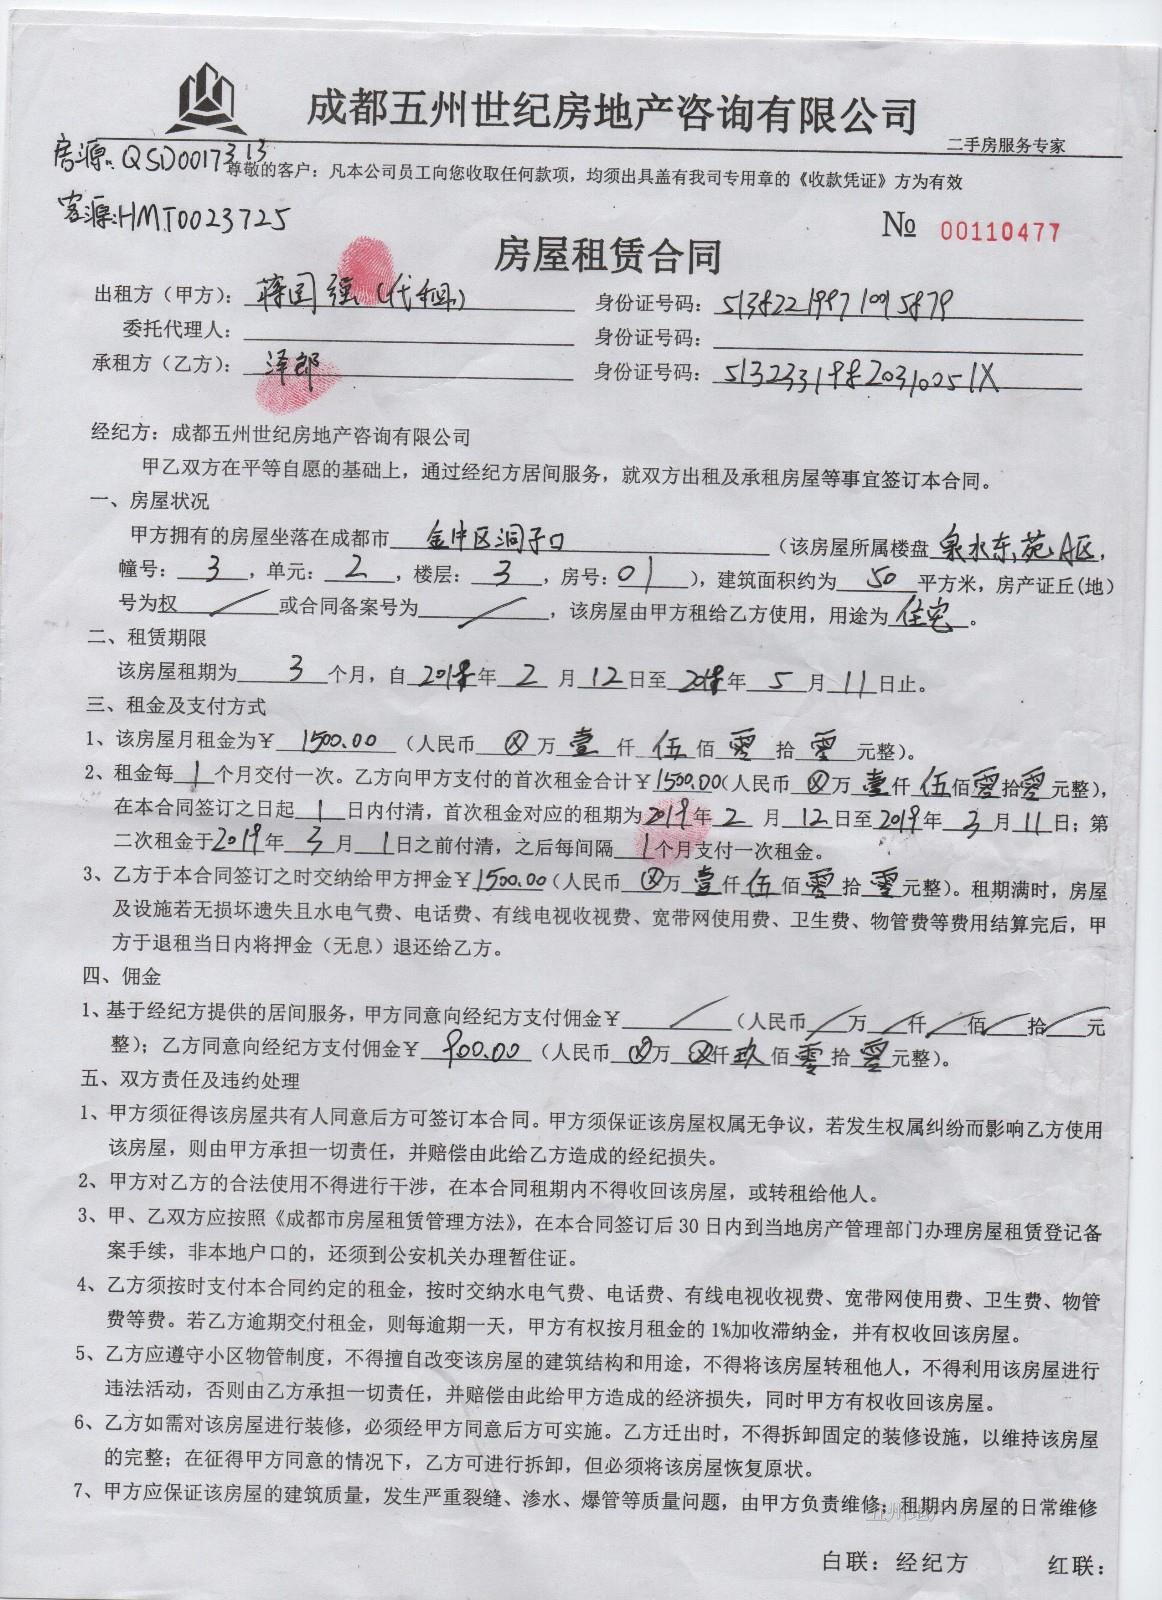 成都五州世纪房地产咨询有限公司
二手房服务专家
房源:QSD0017313
尊敬的客户：凡本公司员工向您收取任何款项，均须出具盖有我司专用章的《收款凭证》方为有效
客源:HMT0023725
№ 00110477
房屋租赁合同
出租方（甲方）：蒋国强(代租) 身份证号码：513822199710015879
委托代理人： 身份证号码：
承租方（乙方）：泽郎 身份证号码：51323319820310051X
经纪方：成都五州世纪房地产咨询有限公司
甲乙双方在平等自愿的基础上，通过经纪方居间服务，就双方出租及承租房屋等事宜签订本合同。
一、房屋状况
甲方拥有的房屋坐落在成都市金牛区洞子口（该房屋所属楼盘泉水东苑A区，
幢号：3，单元：2，楼层：3，房号：01），建筑面积约为50平方米，房产证丘(地)
号为权／或合同备案号为／，该房屋由甲方租给乙方使用，用途为住宅。
二、租赁期限
该房屋租期为3个月，自2019年2月12日至2019年5月11日止。
三、租金及支付方式
1、该房屋月租金为￥1500.00（人民币⊗万壹仟伍佰零拾零元整）。
2、租金每1个月交付一次。乙方向甲方支付的首次租金合计￥1500.00(人民币⊗万壹仟伍佰零拾零元整），
在本合同签订之日起1日内付清，首次租金对应的租期为2019年2月12日至2019年3月11日；第
二次租金于2019年3月1日之前付清，之后每间隔1个月支付一次租金。
3、乙方于本合同签订之时交纳给甲方押金￥1500.00（人民币⊗万壹仟伍佰零拾零元整）。租期满时，房屋
及设施若无损坏遗失且水电气费、电话费、有线电视收视费、宽带网使用费、卫生费、物管费等费用结算完后，甲
方于退租当日内将押金（无息）退还给乙方。
四、佣金
1、基于经纪方提供的居间服务，甲方同意向经纪方支付佣金￥／（人民币／万／仟／佰／拾／元
整）；乙方同意向经纪方支付佣金￥900.00（人民币⊗万⊗仟玖佰零拾零元整）。
五、双方责任及违约处理
1、甲方须征得该房屋共有人同意后方可签订本合同。甲方须保证该房屋权属无争议，若发生权属纠纷而影响乙方使用
该房屋，则由甲方承担一切责任，并赔偿由此给乙方造成的经纪损失。
2、甲方对乙方的合法使用不得进行干涉，在本合同租期内不得收回该房屋，或转租给他人。
3、甲、乙双方应按照《成都市房屋租赁管理方法》，在本合同签订后30日内到当地房产管理部门办理房屋租赁登记备
案手续，非本地户口的，还须到公安机关办理暂住证。
4、乙方须按时支付本合同约定的租金，按时交纳水电气费、电话费、有线电视收视费、宽带网使用费、卫生费、物管
费等费。若乙方逾期交付租金，则每逾期一天，甲方有权按月租金的1%加收滞纳金，并有权收回该房屋。
5、乙方应遵守小区物管制度，不得擅自改变该房屋的建筑结构和用途，不得将该房屋转租他人，不得利用该房屋进行
违法活动，否则由乙方承担一切责任，并赔偿由此给甲方造成的经济损失，同时甲方有权收回该房屋。
6、乙方如需对该房屋进行装修，必须经甲方同意后方可实施。乙方迁出时，不得拆卸固定的装修设施，以维持该房屋
的完整；在征得甲方同意的情况下，乙方可进行拆卸，但必须将该房屋恢复原状。
7、甲方应保证该房屋的建筑质量，发生严重裂缝、渗水、爆管等质量问题，由甲方负责维修；租期内房屋的日常维修
五州地产
白联：经纪方 红联：